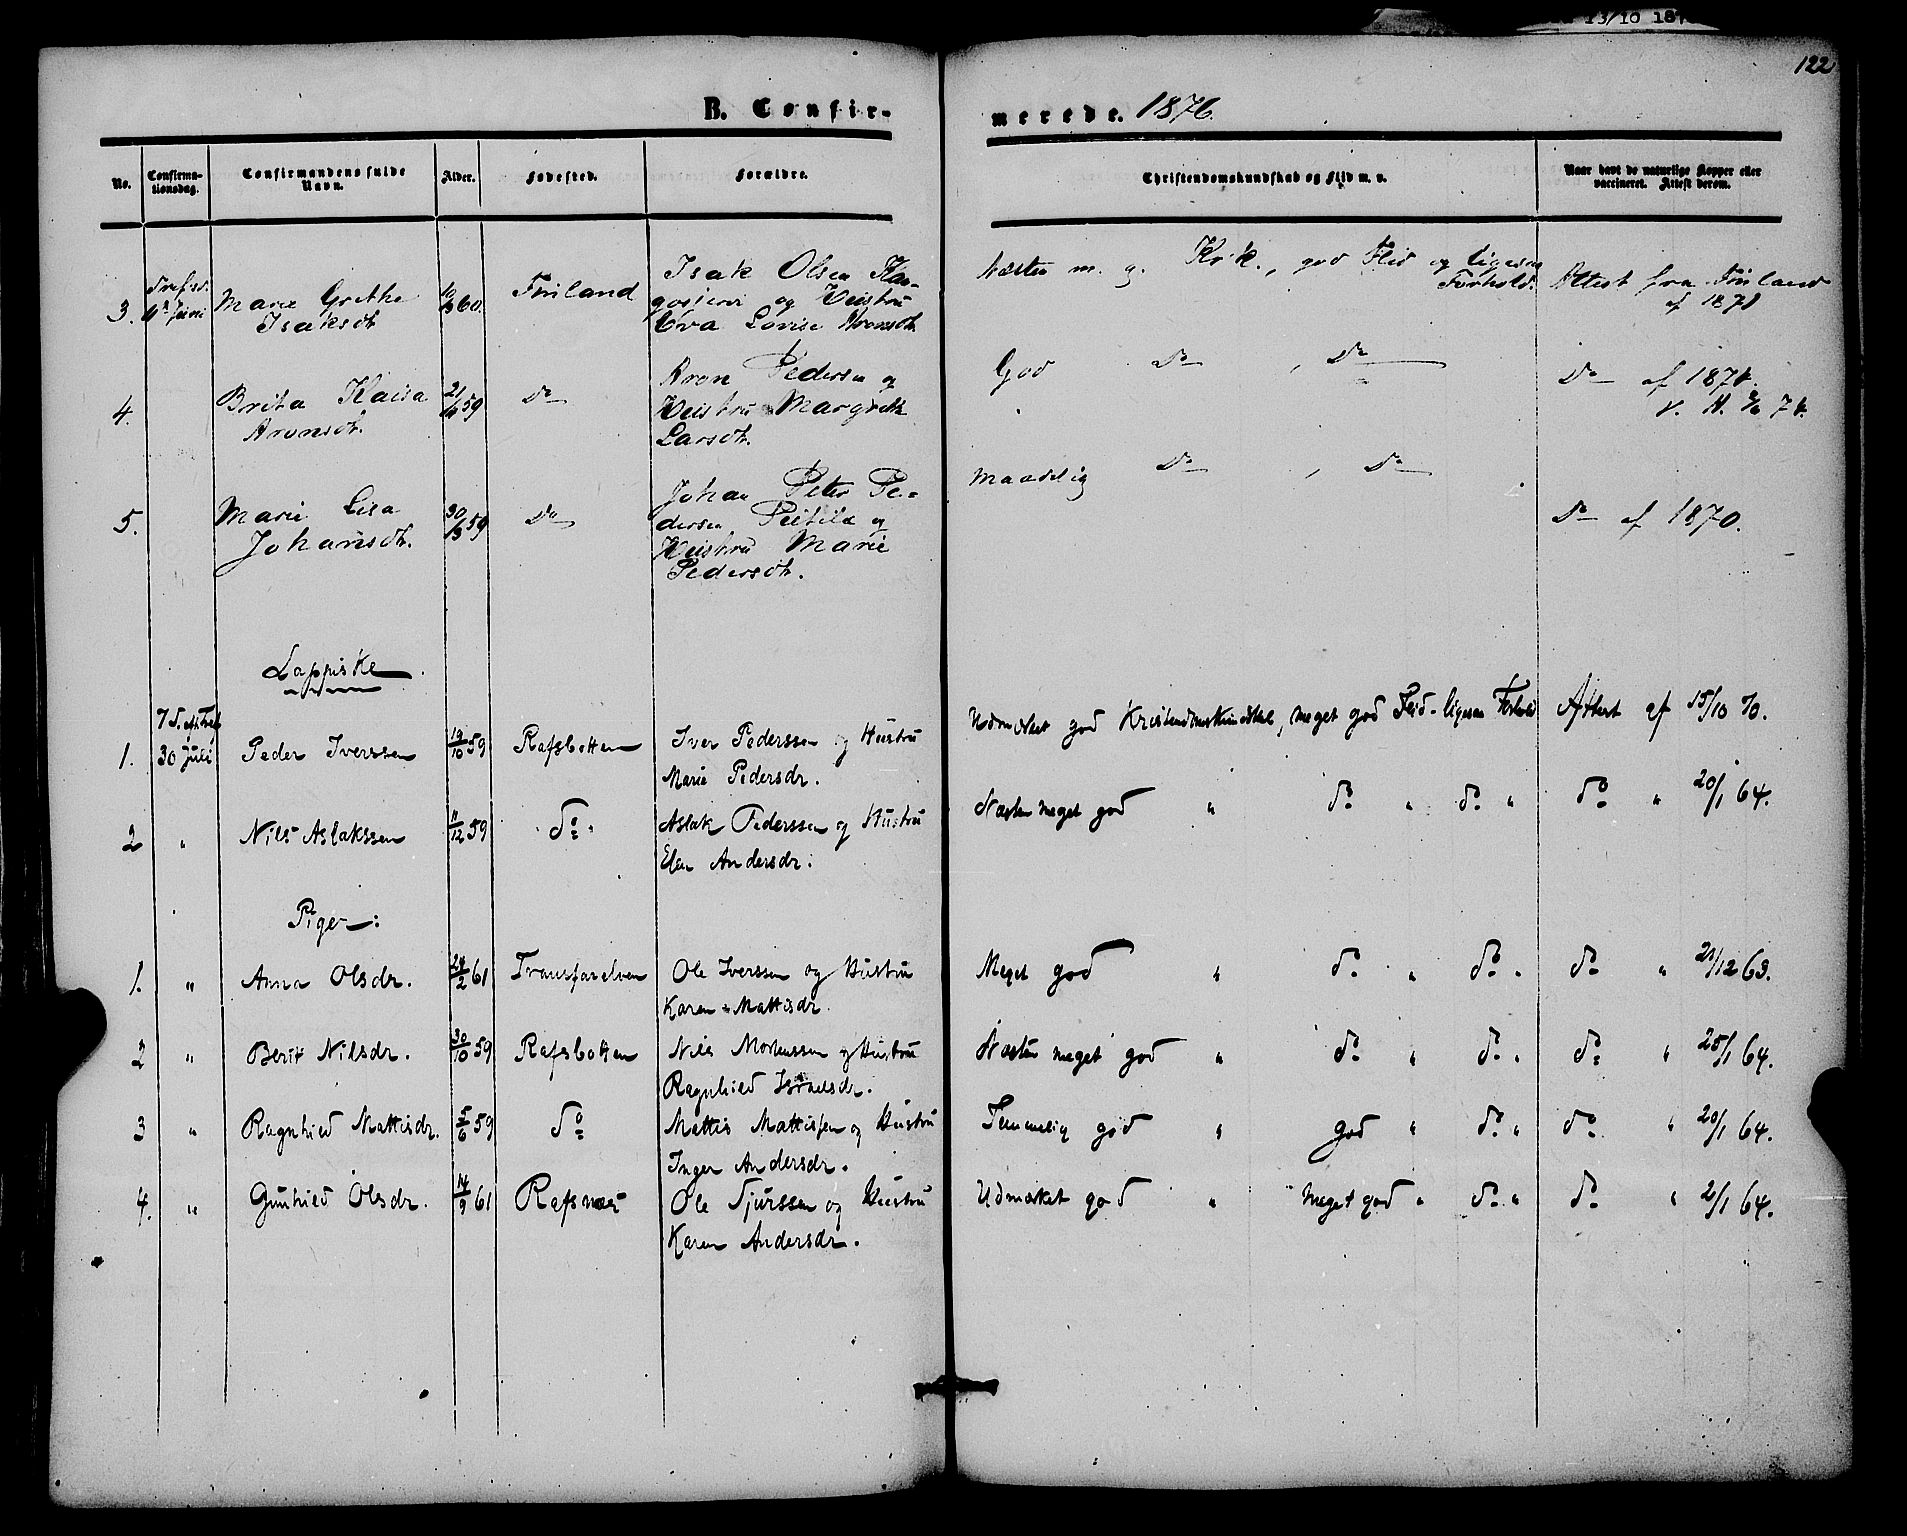 13/10 18
122
B. Confir-
merede. 1876.
No.
Confirma-
tionsdag.
Confirmandens fulde
Navn.
Alder.
Fødested.
Forældre.
Christendomskundskab og Flid m. v.
Naar havt de naturlige Kopper eller
vaccineret. Attest derom.
3. Juni Marie Grethe Isaksdt. 60. Finland
Isak Olsen
og Hustru
Eva Lovise Aronsdt.
Næsten m. g. Kr. k., god Flid og ligesaa
Forhold.
Attest fra Finland
af 1871
4. Brita Kaisa 59 Do
Aronsdt.
Aron Pedersen og
Hustru Margrete
Larsdt.
God Do , Do
Do af 1871.
5. Marie Lisa 30 59 Do
Johansdt.
Johan Peter Pe-
dersen og
Hustru Marie
Pedersdt.
Maadelig Do , Do
Do af 1870.
Lappiske
7 S. eft. Tref
1. 30 Juli Peder Iverssen 19/10 59 Rafsbotten Iver Pederssen og Hustru
Marie Pedersdr.
Udmærket god Kristendomskundskab, meget god Flid - ligesaa Forhold Attest af 15/10 70.
2 " Nils Aslakssen 11/12 59 Do Aslak Pederssen og Hustru
Elen Andersdr.
Næsten meget god " do " do " do " 20/1 64.
Piger:
1. " Anna Olsdr. 24/2 61 Transfarelven Ole Iverssen og Hustru
Karen Mattisdr.
Meget god " do " do " do " 21/12 63.
2 " Berit Nilsdr. 30/10 59 Rafsbotten Nils Mortenssen og Hustru
Ragnhild Israelsdr.
Næsten meget god " do " do " do " 25/1 64.
3 " Ragnhild Mattisdr. 5/6 59 do Mattis Mattissen og Hustru
Inger Andersdr.
Temmelig god " god " do " do " 20/1 64.
4. " Gunhild Olsdr. 14/9 61 Rafsnæs Ole Sjurssen og Hustru
Karen Andersdr.
Udmærket god " Meget god " do " do " 2/1 64.